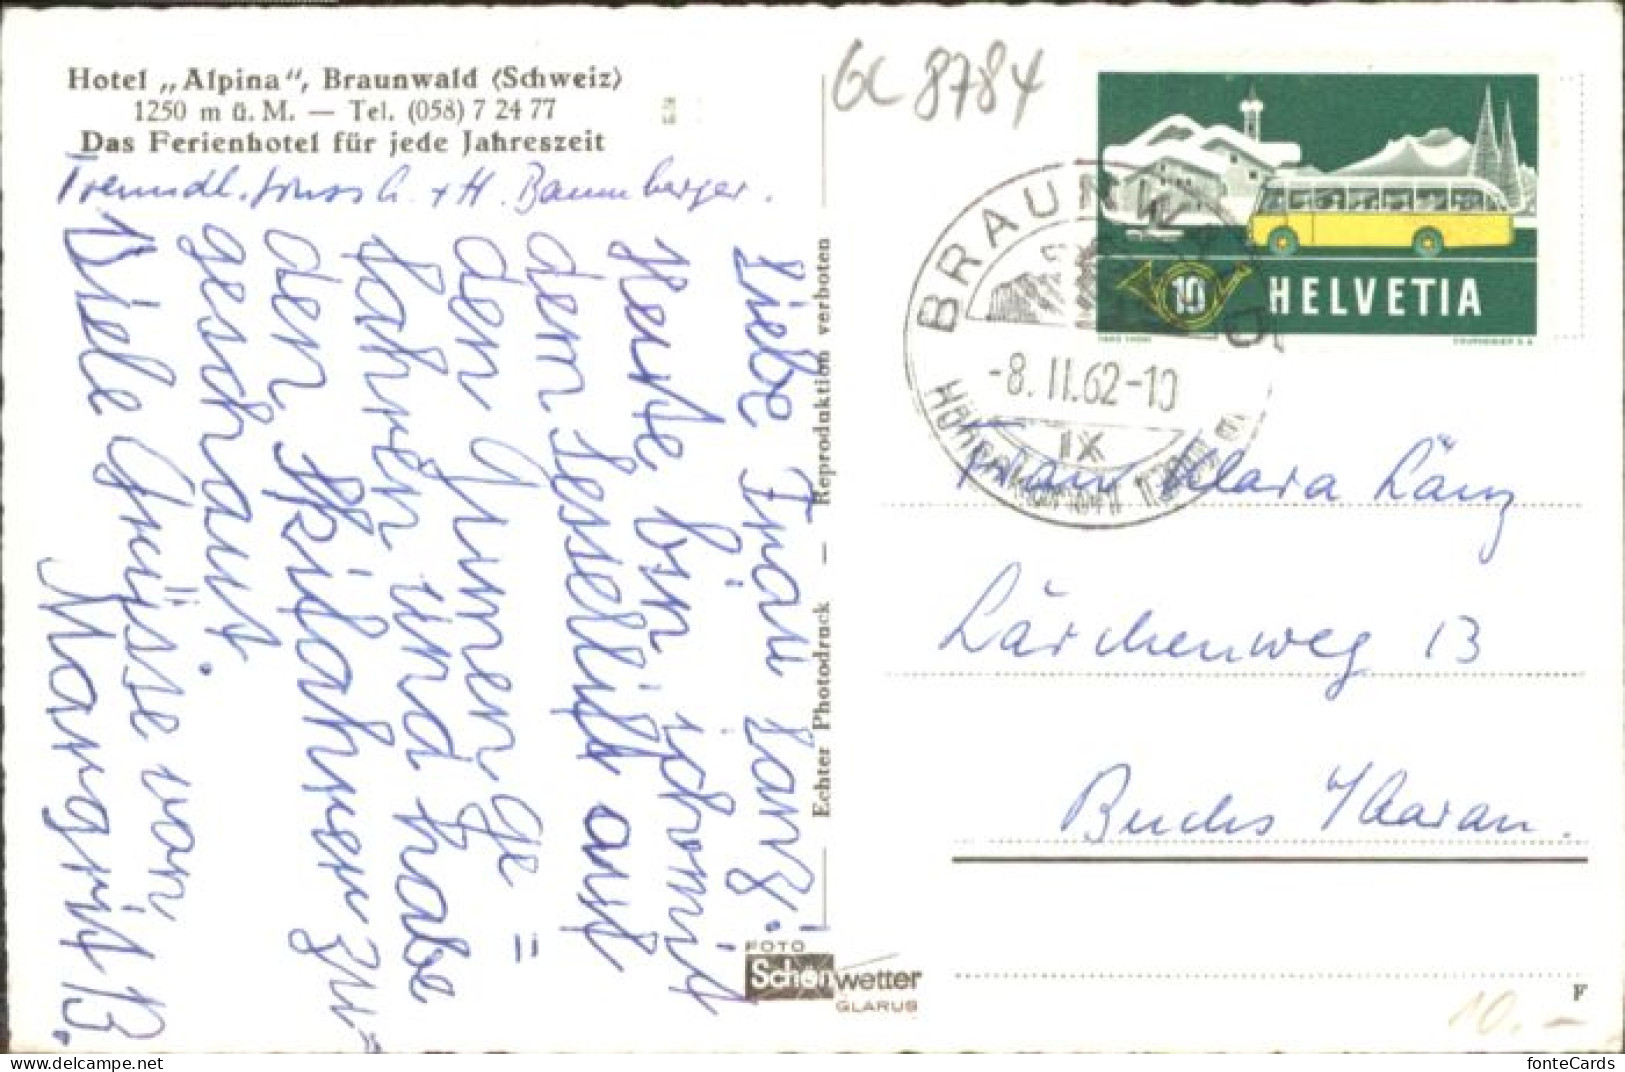 Hotel „Alpina“, Braunwald (Schweiz)
1250 m ü. M. — Tel. (058) 7 24 77
Das Ferienhotel für jede Jahreszeit
Freundl. Gruss G. + H. Baumberger.
Liebe Frau Lanz!
Heute bin ich mit
dem Sessellift auf
den Gumen ge=
fahren und habe
den Skifahrer zu=
geschaut.
Viele Grüsse von
Margrit B.
Echter Photodruck — Reproduktion verboten
FOTO
Schönwetter
GLARUS
GC 8784
HELVETIA
10
COURVOISIER S.A.
BRAUNWALD
-8.II.62-10
IX
Frau Klara Länz
Lärchenweg 13
Buchs / Aarau.
F
10.-
fonteCards